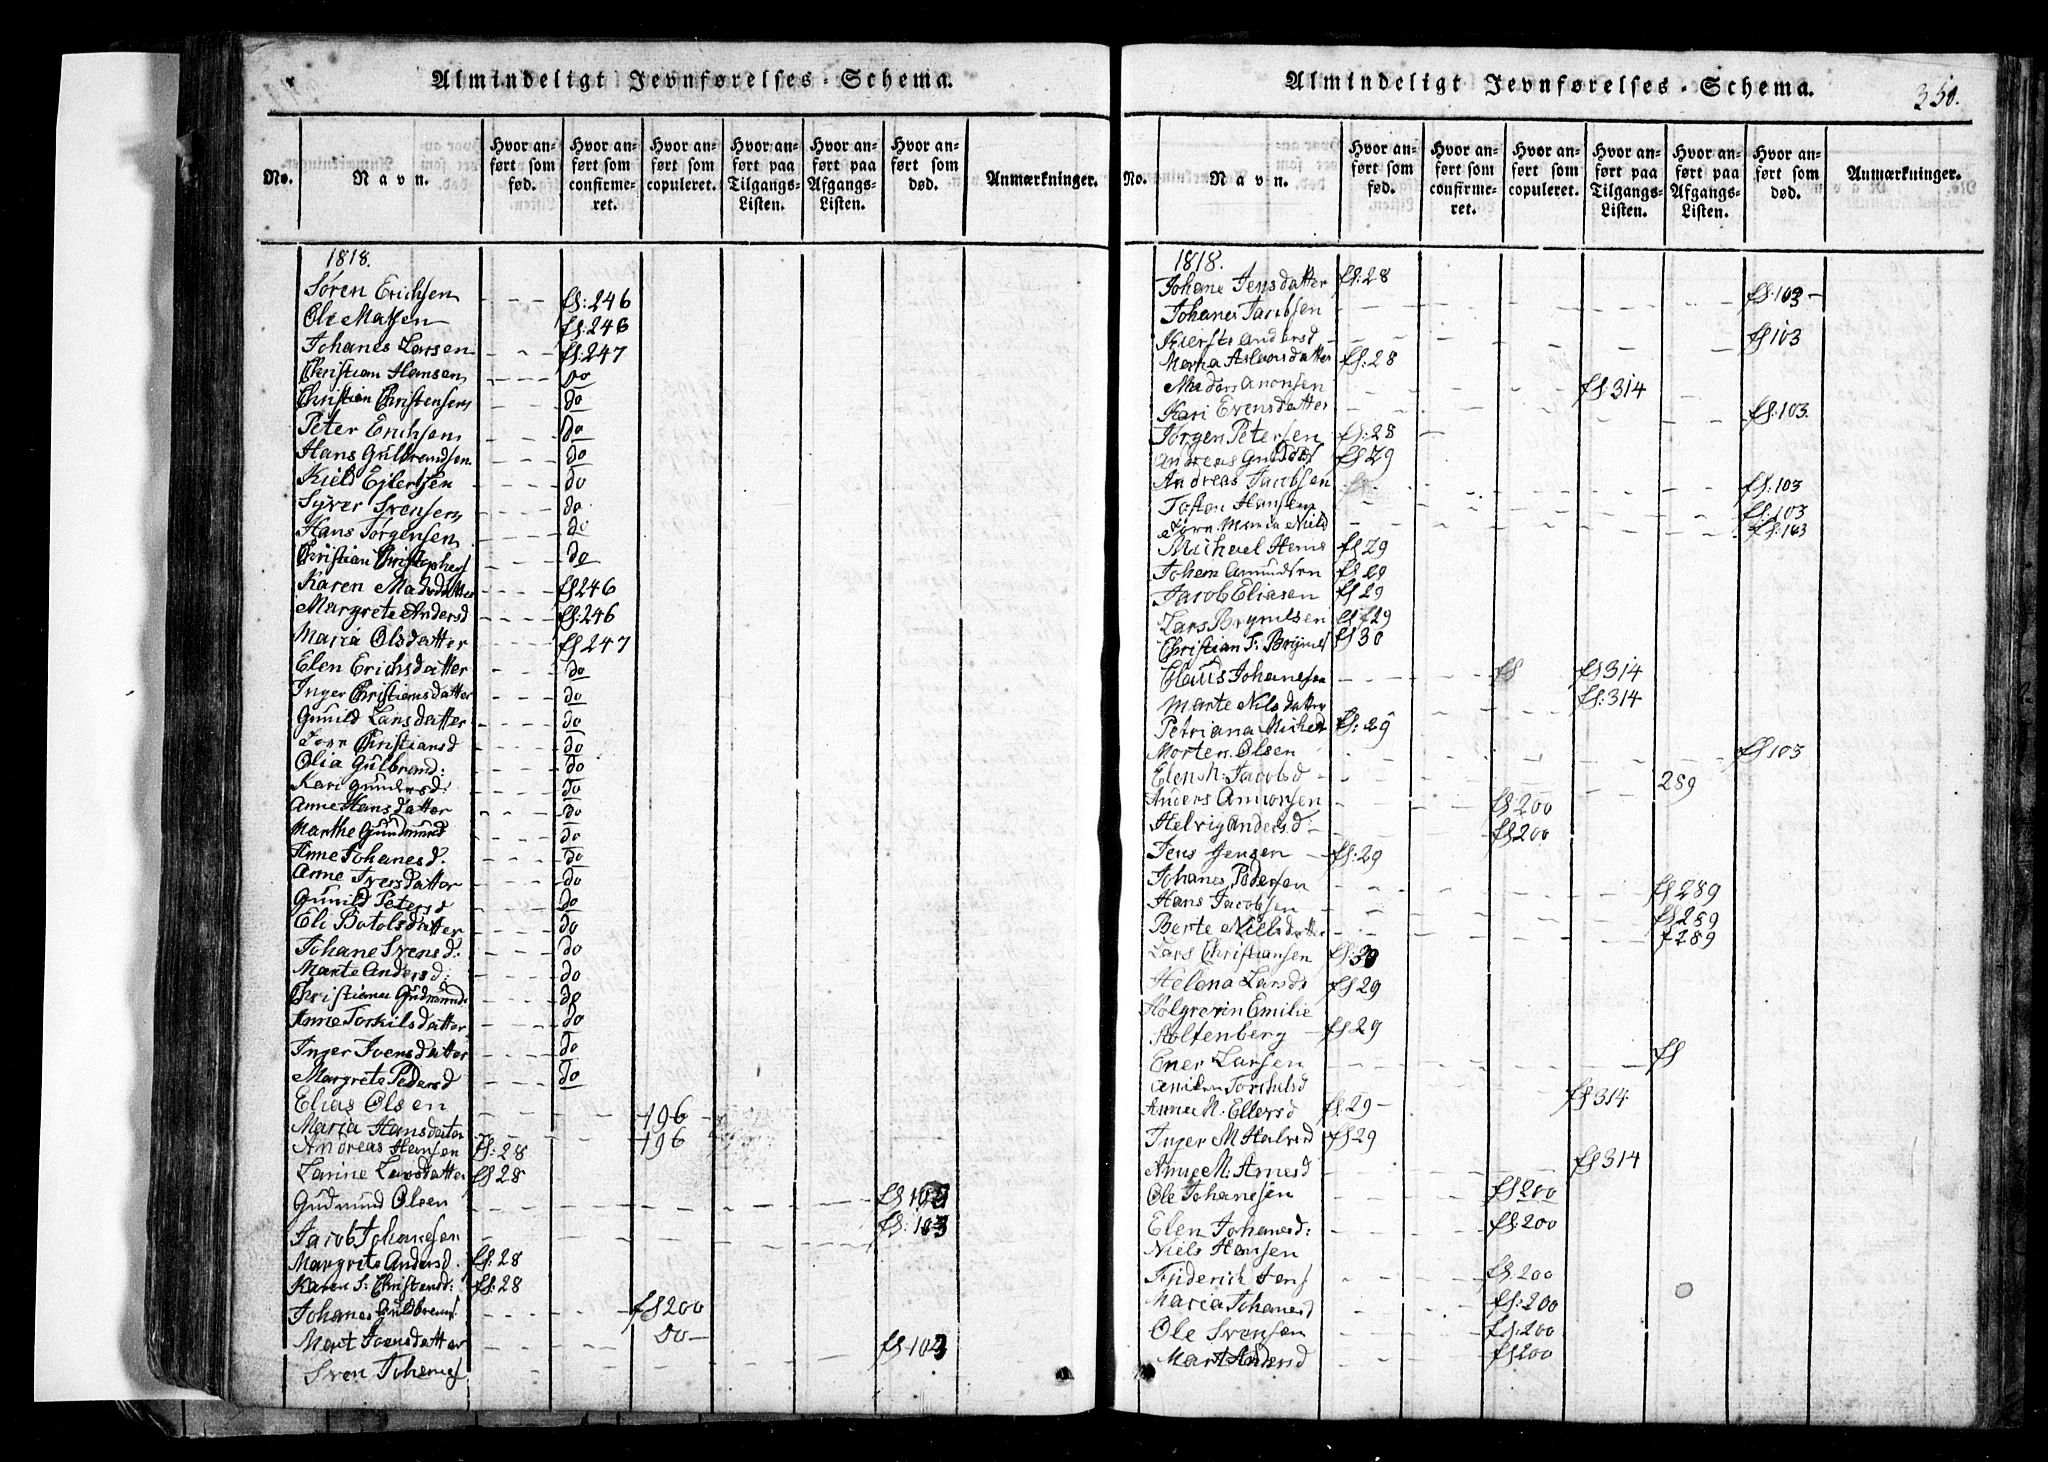 Almindeligt Jevnførelses-Schema.
No.
Navn.
Hvor anført som fød.
Hvor anført som confirmeret.
Hvor anført som copuleret.
Hvor anført paa Tilgangs-Listen.
Hvor anført paa Afgangs-Listen.
Hvor anført som død.
Anmærkninger.
1818.
Søren Erichsen fS:246
Ole Matsen fS:246
Johanes Larsen fS:247
Christian Hansen do
Christian Christensen do
Peter Erichsen do
Hans Gulbrandsen do
Kield Ejlertsen do
Syver Svensen do
Hans Jørgensen do
Christian Christophers do
Karen Madsdatter fS246
Margrete Anders d fS:246
Maria Olsdatter fS247
Elen Erichsdatter do
Inger Christiansdatter do
Gunild Larsdatter do
Christians d do
Olia Gulbrand: do
Kari Gunders d: do
Anne Hansdatter do
Marthe Gudmund do
Anne Johanes d. do
Anne Iversdatter do
Gunild Peters d do
Eli Botolsdatter do
Johane Svens d. do
Marte Anders d: do
Christiana Gudmunds do
Anne Torkilsdatter do
Inger Ivensdatter do
Margrete Peders d do
Elias Olsen 196
Maria Hansdatter 196
Andreas Hansen fS:28
Larine Larsdatter fS28
Gudmund Olsen
Jacob Johanesen fS:103
Margrete Anders d. fS:28
Karen S: Christens d: fS:28
Johanes Guldbrans fS200
Mart Ivensdatter do
Sven Johanes fS103
Almindeligt Jevnførelses-Schema.
350.
No.
Navn.
Hvor anført som fød.
Hvor anført som confirmeret.
Hvor anført som copuleret.
Hvor anført paa Tilgangs-Listen.
Hvor anført paa Afgangs-Listen.
Hvor anført som død.
Anmærkninger.
1818.
Johane Jensdatter fS:28
Johanes Jacobsen fS:103
Kiersti Anders d fS103
Maria Aslansdatter fS:28
Mads Anonsen fS:314
Kari Evensdatter fS:103
Jørgen Petersen fS:28
Andreas fS29
Andreas Jacobsen fS:103
Tosten Hansen fS:103
Maria Nield fS:103
Michael Hans fS29
Johan Amundsen fS:29
Jacob Eliasen fS29
Lars Brynilsen fS29
Christian S: Brynils fS30
Claus Johanesen fS fS314
Marte Nilsdatter fS:314
Petriana Michel fS:29
Morten Olsen fS103
Elen M: Jacobs d 289
Anders Amonsen fS200
Helvig Anders d: fS200
Jens Jensen fS:29
Johanes Pedersen fS289
Hans Jacobsen fS289
Berte Nielsdatter f289
Lars Christiansen fS:30
Helena Lars d fS29
Holgrerin Emilie
Stoltenberg fS29
Ener Larsen fS
Torchils d fS314
Anne N. Ellers d fS:29
Inger M Halvr d fS29
Anne M. Arnes d fS314
Ole Johanesen fS200
Elen Johanes d: fS:200
Niels Hansen
Friderich Jens fS:200
Maria Johanes d fS:200
Ole Svensen fS:200
Mart Anders d fS200